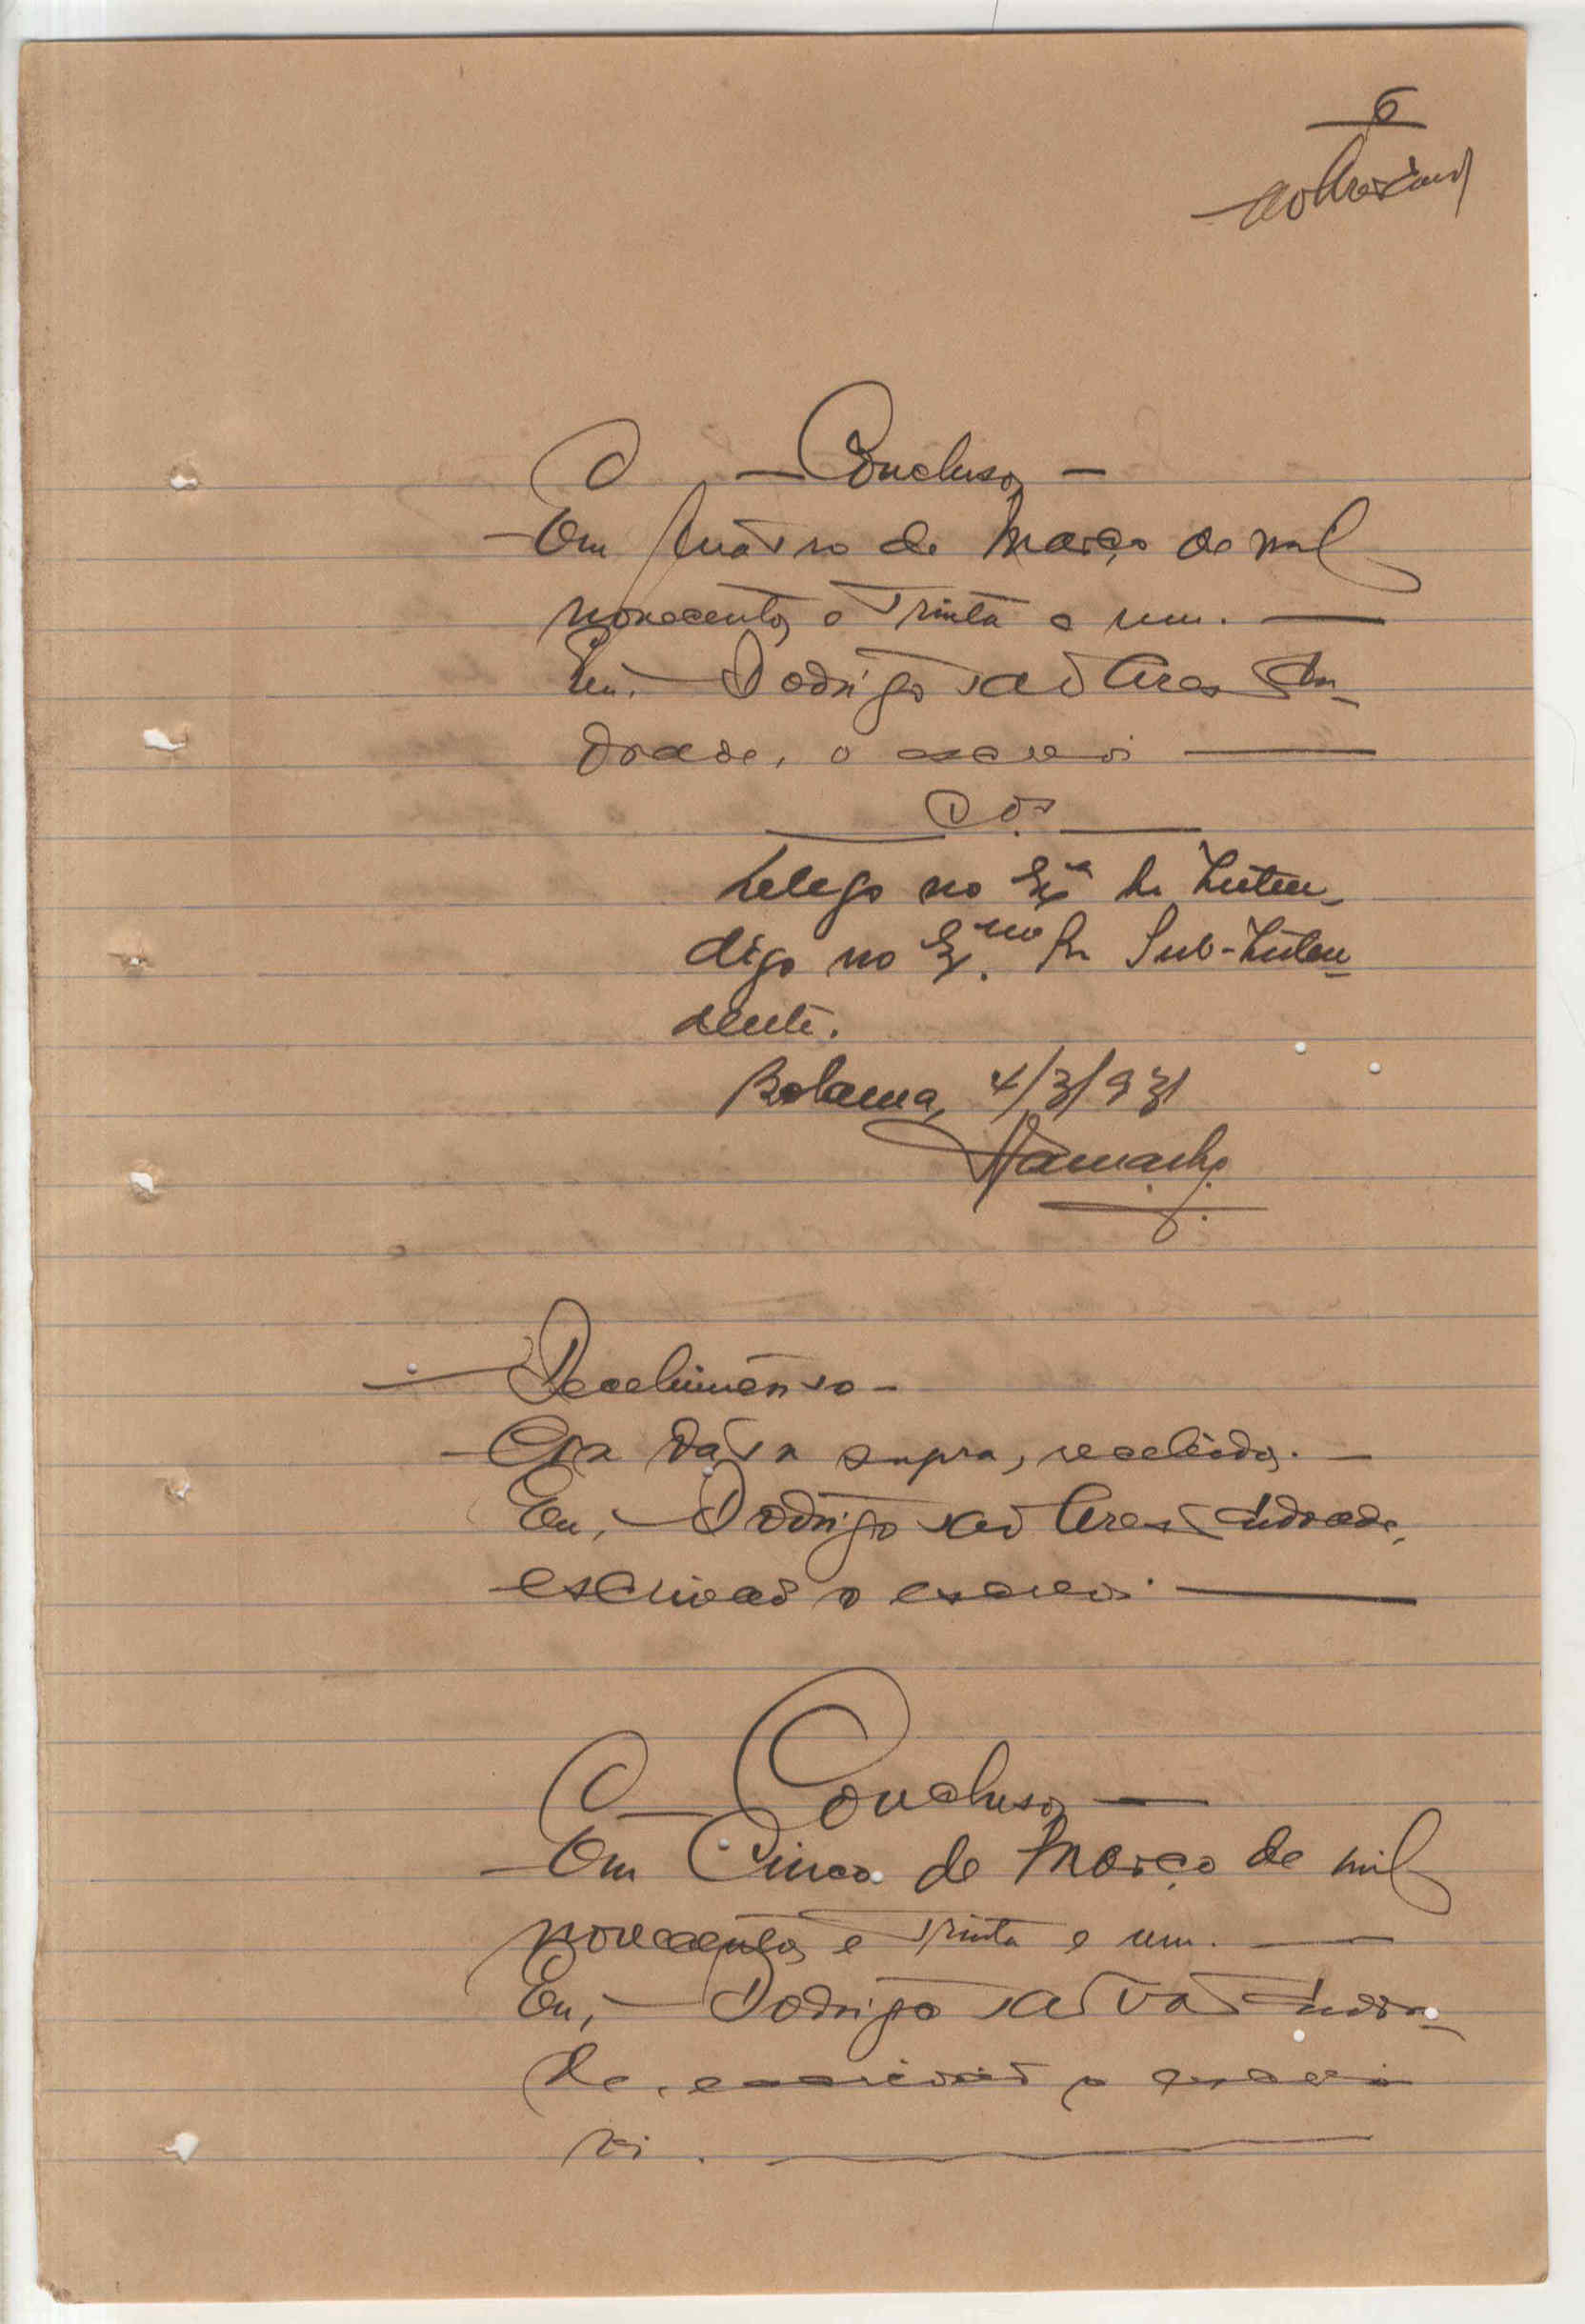 6
— Conclusos —
Em quatro de Março de mil
novecentos e trinta e um. —
Eu, Rodrigo Tavares An-
drade, o escrevi —
Delego no Exº Sr Inten-
digo no Ex.mo Sr Sub-Inten-
dente.
Bolama, 4/3/931
Camacho
— Recebimento —
Era data supra, recebidos. —
Eu, Rodrigo Tavares Andrade,
escrivão o escrevi. —
— Conclusos —
Em Cinco de Março de mil
novecentos e trinta e um. —
Eu, Rodrigo Andra-
de, escrivão o escre
vi. —